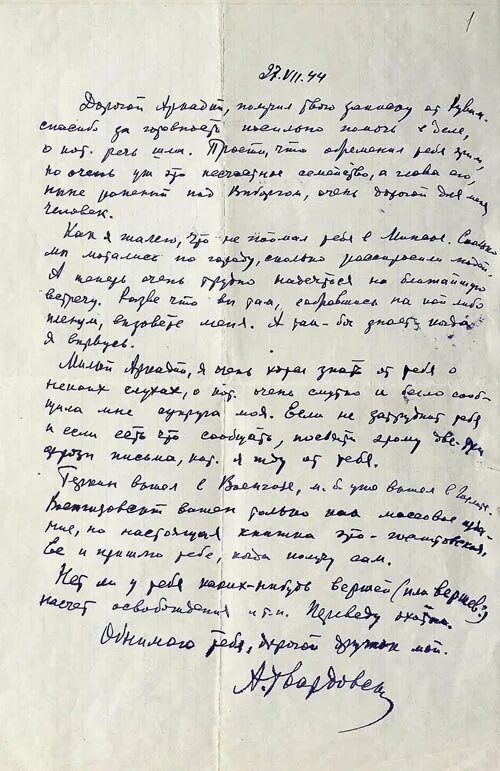 1
27.VII.44
Дорогой Аркадий, получил твою записку от Кувин.
спасибо за готовность посильно помочь в деле,
о кот. речь шла. Прости, что обременил тебя этим,
но очень уж это несчастное семейство, а глава его,
ныне раненый под Выборгом, очень дорогой для меня
человек.
Как я жалею, что не поймал тебя в Минске. Сколько
мы мотались по городу, сколько расспросили людей.
А теперь очень трудно надеяться на ближайшую
встречу. Разве что вы там, собравшись на какой либо
пленум, вызовете меня. А там бы знаете, когда
я вырвусь.
Милый Аркадий, я очень хотел знать от тебя о
неких слухах, о кот. очень смутно и было сооб-
щила мне супруга моя. Если не затруднит тебя
и если есть что сообщать, посвяти этому две-три
фразы письма, кот. я жду от тебя.
Теркин вышел в Воениздате, м.б. уже вышел в
Воениздатский вышел только как массовое изда-
ние, но настоящая книжка это - гослитовская,
ее и пришлю тебе, когда получу сам.
Нет ли у тебя каких-нибудь вершей (или вершев?)
насчет освобождения и т.п. Переведу охотно.
Обнимаю тебя, дорогой дружок мой.
А. Твардовский